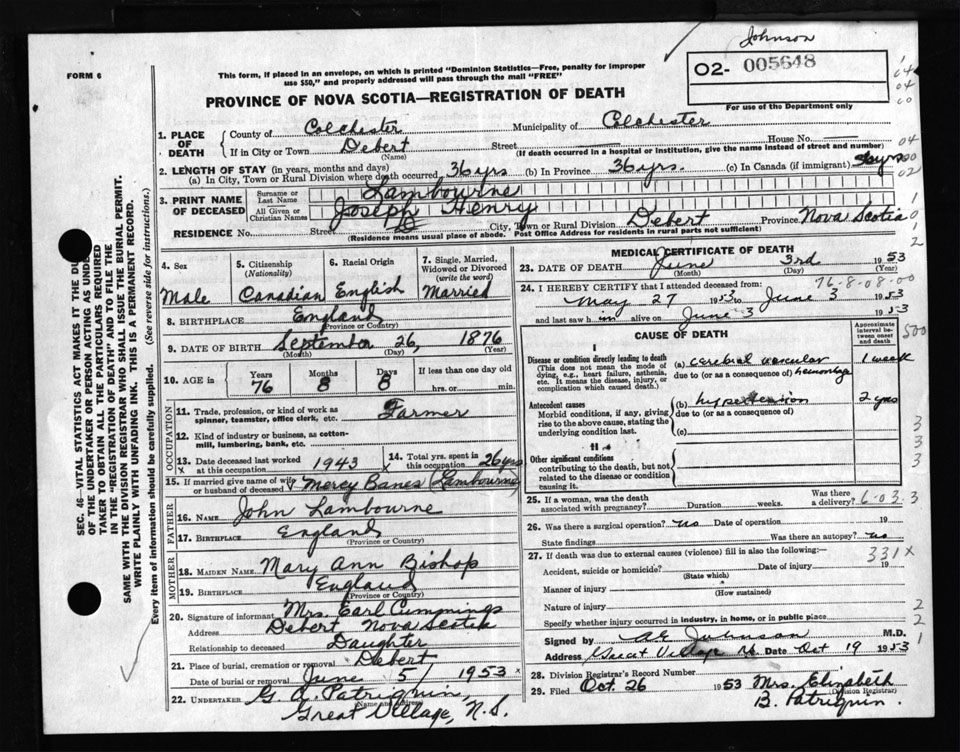 Johnson
FORM 6
This form, if placed in an envelope, on which is printed "Dominion Statistics—Free, penalty for improper
use $50," and properly addressed will pass through the mail "FREE"
O2- 005648
For use of the Department only
PROVINCE OF NOVA SCOTIA—REGISTRATION OF DEATH
1. PLACE OF DEATH County of Colchester Municipality of Colchester
If in City or Town Debert Street House No.
(Name) (If death occurred in a hospital or institution, give the name instead of street and number)
2. LENGTH OF STAY (in years, months and days)
(a) In City, Town or Rural Division where death occurred 36 yrs (b) In Province 36 yrs. (c) In Canada (if immigrant) 36 yrs
3. PRINT NAME OF DECEASED Surname or Last Name Lambourne
All Given or Christian Names Joseph Henry
RESIDENCE No. Street City, Town or Rural Division Debert Province Nova Scotia
(Residence means usual place of abode. Post Office Address for residents in rural parts not sufficient)
4. Sex Male
5. Citizenship (Nationality) Canadian
6. Racial Origin English
7. Single, Married, Widowed or Divorced (write the word) Married
8. BIRTHPLACE England
(Province or Country)
9. DATE OF BIRTH September 26, 1876
(Month) (Day) (Year)
10. AGE in Years 76 Months 8 Days 8 If less than one day old
hrs. or min.
OCCUPATION
11. Trade, profession, or kind of work as spinner, teamster, office clerk, etc. Farmer
12. Kind of industry or business, as cotton-mill, lumbering, bank, etc.
13. Date deceased last worked at this occupation 1943
14. Total yrs. spent in this occupation 26 yrs
15. If married give name of wife or husband of deceased Mercy Banes (Lambourne)
FATHER
16. Name John Lambourne
17. Birthplace England
(Province or Country)
MOTHER
18. Maiden Name Mary Ann Bishop
19. Birthplace England
(Province or Country)
20. Signature of informant Mrs. Earl Cummings
Address Debert Nova Scotia
Relationship to deceased Daughter
21. Place of burial, cremation or removal Debert
Date of burial or removal June 5, 1953
22. UNDERTAKER G. A. Patriquin,
(Name and Address)
Great Village, N.S.
MEDICAL CERTIFICATE OF DEATH
23. DATE OF DEATH June 3rd 1953
(Month) (Day) (Year)
76-8-08-00
24. I HEREBY CERTIFY that I attended deceased from:
May 27 1953 to June 3 1953
and last saw him alive on June 3 1953
CAUSE OF DEATH
Approximate interval between onset and death
I
Disease or condition directly leading to death
(This does not mean the mode of dying, e.g., heart failure, asthenia, etc. It means the disease, injury, or complication which caused death.)
(a) cerebral vascular 1 week
due to (or as a consequence of) hemorrhage
Antecedent causes
Morbid conditions, if any, giving rise to the above cause, stating the underlying condition last.
(b) hypertension 2 yrs
due to (or as a consequence of)
(c)
II
Other significant conditions
contributing to the death, but not related to the disease or condition causing it.
25. If a woman, was the death associated with pregnancy? Duration weeks. Was there a delivery?
6-03.3
26. Was there a surgical operation? no Date of operation 19
State findings Was there an autopsy? no
27. If death was due to external causes (violence) fill in also the following:—
331X
Accident, suicide or homicide? Date of injury 19
(State which)
Manner of injury
(How sustained)
Nature of injury
Specify whether injury occurred in industry, in home, or in public place
Signed by Johnson M.D.
Address Great Village Date Oct 19 1953
28. Division Registrar's Record Number
29. Filed Oct. 26 1953 Mrs. Elizabeth
(Division Registrar)
B. Patriquin.
SEC. 46—VITAL STATISTICS ACT MAKES IT THE DUTY
OF THE UNDERTAKER OR PERSON ACTING AS UNDERTAKER
TO OBTAIN ALL THE PARTICULARS REQUIRED
IN THE "REGISTRATION OF DEATH" AND TO FILE THE
SAME WITH THE DIVISION REGISTRAR WHO SHALL ISSUE THE BURIAL PERMIT.
WRITE PLAINLY WITH UNFADING INK. THIS IS A PERMANENT RECORD.
Every item of information should be carefully supplied. (See reverse side for instructions.)